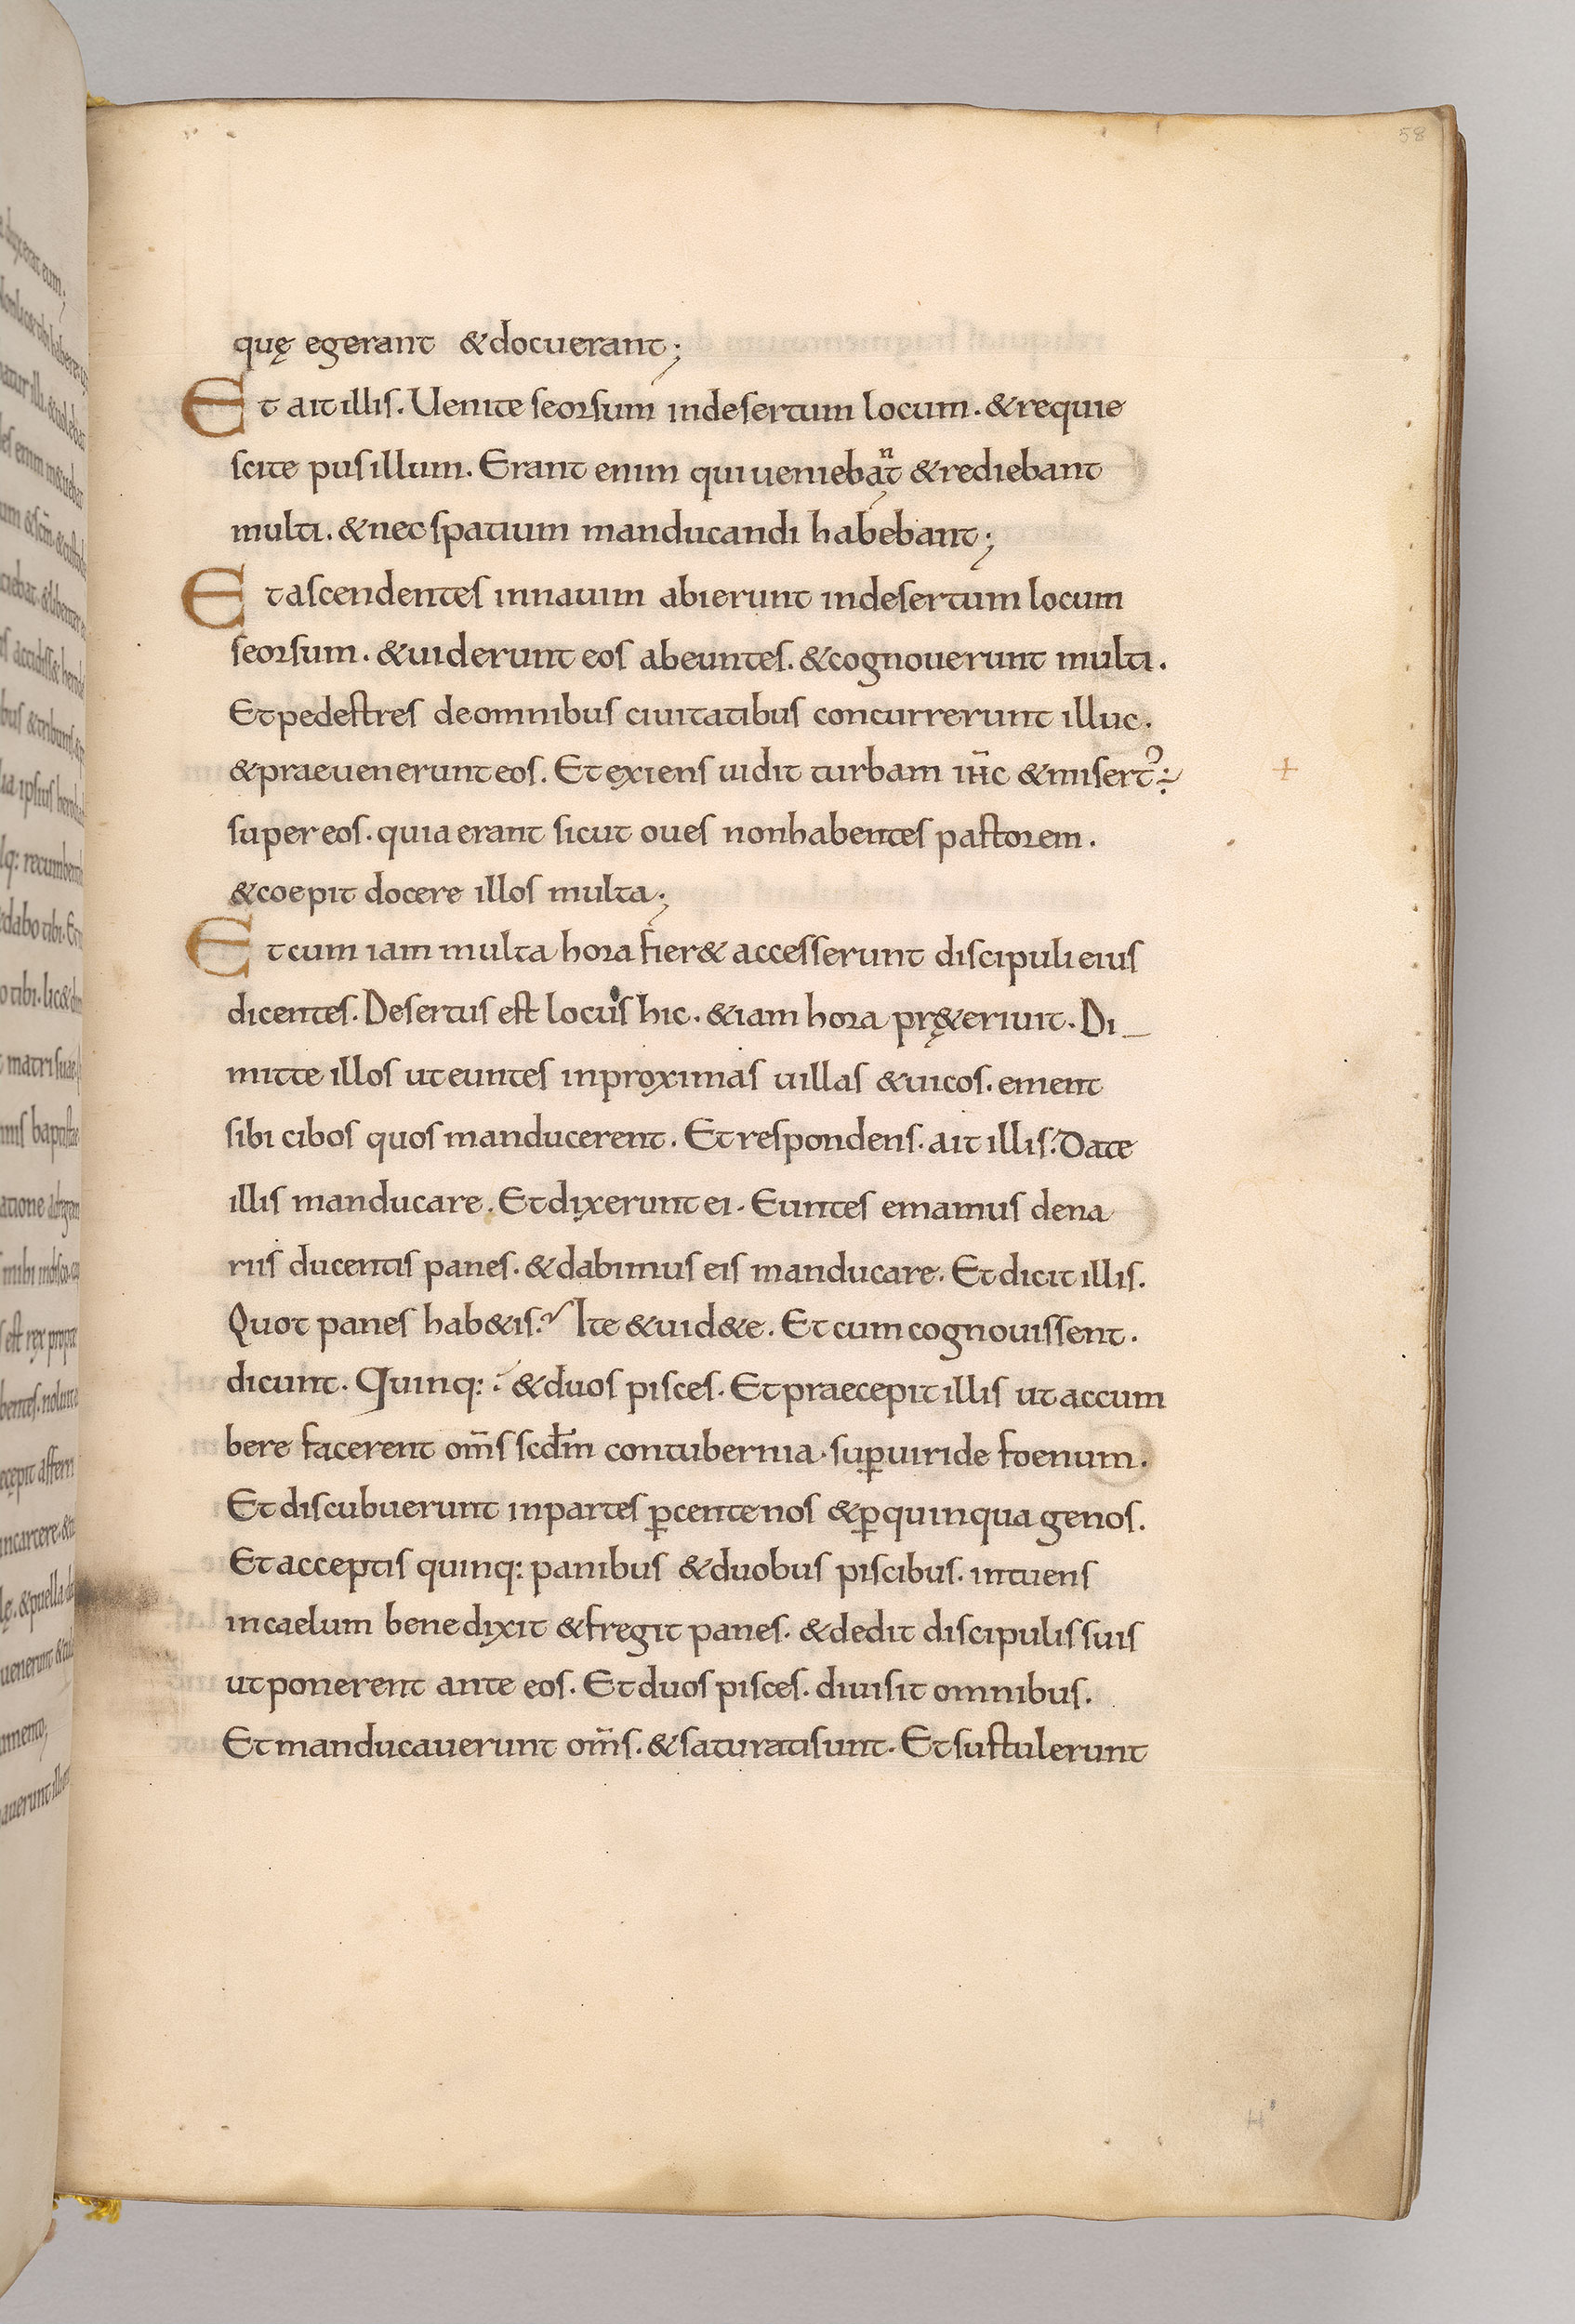 58
quę egerant &docuerant;
Et ait illis. Uenite seorsum indesertum locum. &requie
scite pusillum. Erant enim qui ueniebant &rediebant
multi. &nec spatium manducandi habebant;
Et ascendentes innauim abierunt indesertum locum
seorsum. &uiderunt eos abeuntes. &cognouerunt multi.
Et pedestres deomnibus ciuitatibus concurrerunt illuc.
&praeuenerunt eos. Et exiens uidit turbam ih̄c &misert᾽ ÷
super eos. quia erant sicut oues nonhabentes pastorem.
&coepit docere illos multa;
Et cum iam multa hora fier& accesserunt discipuli eius
dicentes. Desertus est locus hic. &iam hora prę&eriuit. Di_
mitte illos ut euntes inproximas uillas &uicos. ement
sibi cibos quos manducerent. Et respondens. ait illis. Date
illis manducare. Et dixerunt ei. Euntes emamus dena
riis ducentis panes. &dabimus eis manducare. Et dicit illis.
Quot panes hab&is? Ite &uid&e. Et cum cognouissent.
dicunt. Quinq: &duos pisces. Et praecepit illis ut accum
bere facerent om̄s scdm̄ contubernia. suꝑ uiride foenum.
Et discubuerunt inpartes ꝑcentenos &ꝑquinquagenos.
Et acceptis quinq: panibus &duobus piscibus. intuens
incaelum benedixit &fregit panes. &dedit discipulis suis
ut ponerent ante eos. Et duos pisces. diuisit omnibus.
Et manducauerunt om̄s. &saturati sunt. Et sustulerunt